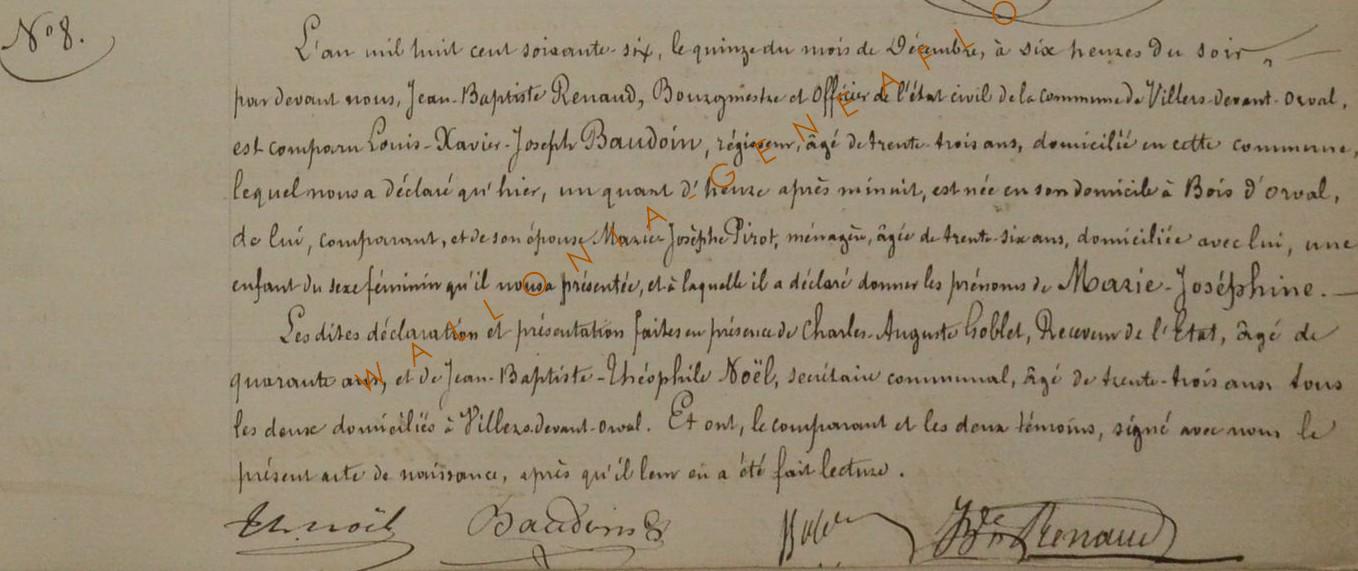 N° 8.
L'an mil huit cent soixante-six, le quinze du mois de Décembre, à six heures du soir,
par devant nous, Jean-Baptiste Renaud, Bourgmestre et Officier de l'état civil de la commune de Villers-devant-Orval,
est comparu Louis-Xavier-Joseph Baudoin, régisseur, âgé de trente-trois ans, domicilié en cette commune,
lequel nous a déclaré qu'hier, un quart d'heure après minuit, est née en son domicile à Bois d'Orval,
de lui, comparant, et de son épouse Marie-Josèphe Pirot, ménagère, âgée de trente-six ans, domiciliée avec lui, une
enfant du sexe féminin qu'il nous a présentée, et à laquelle il a déclaré donner les prénoms de Marie-Joséphine.
Les dites déclaration et présentation faites en présence de Charles-Auguste Goblet, Receveur de l'Etat, âgé de
quarante ans, et de Jean-Baptiste-Théophile Noël, secrétaire communal, âgé de trente-trois ans, tous
les deux domiciliés à Villers-devant-Orval. Et ont, le comparant et les deux témoins, signé avec nous le
présent acte de naissance, après qu'il leur en a été fait lecture.
Th. Noël Baudoin JBte Renaud
WALLONIA-GENEAFLO